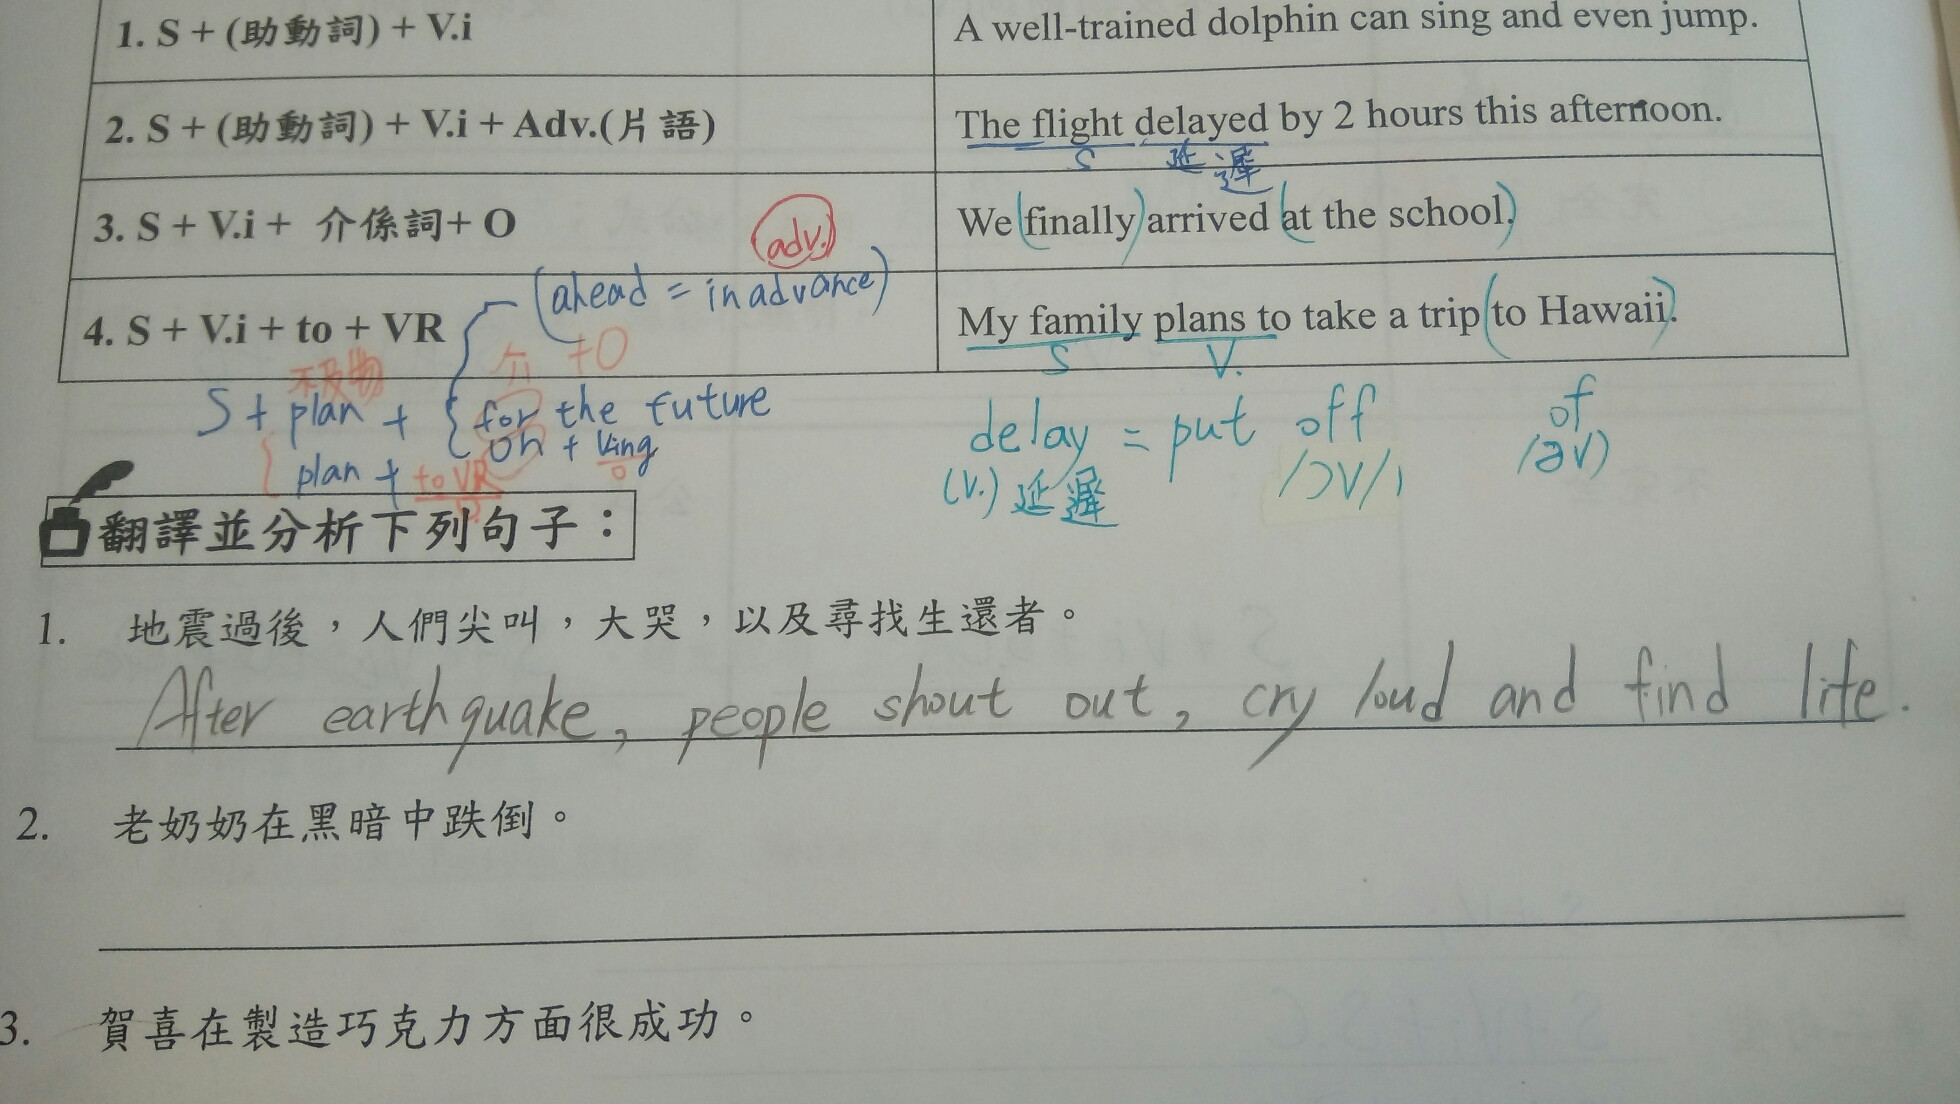 1. S + (助動詞) + V.i
A well-trained dolphin can sing and even jump.
2. S + (助動詞) + V.i + Adv.(片語)
The flight delayed by 2 hours this afternoon.
S 延遲
3. S + V.i + 介係詞+ O
We (finally) arrived (at the school.)
(adv.)
(ahead = in advance)
4. S + V.i + to + VR
My family plans to take a trip (to Hawaii).
S V.
不及物 介 +O
S + plan + { for the future
on + Ving
O
plan + to VR
delay = put off of
(v.) 延遲 /ɔv/ /əv)
翻譯並分析下列句子：
1. 地震過後，人們尖叫，大哭，以及尋找生還者。
After earthquake, people shout out, cry loud and find life.
2. 老奶奶在黑暗中跌倒。
3. 賀喜在製造巧克力方面很成功。